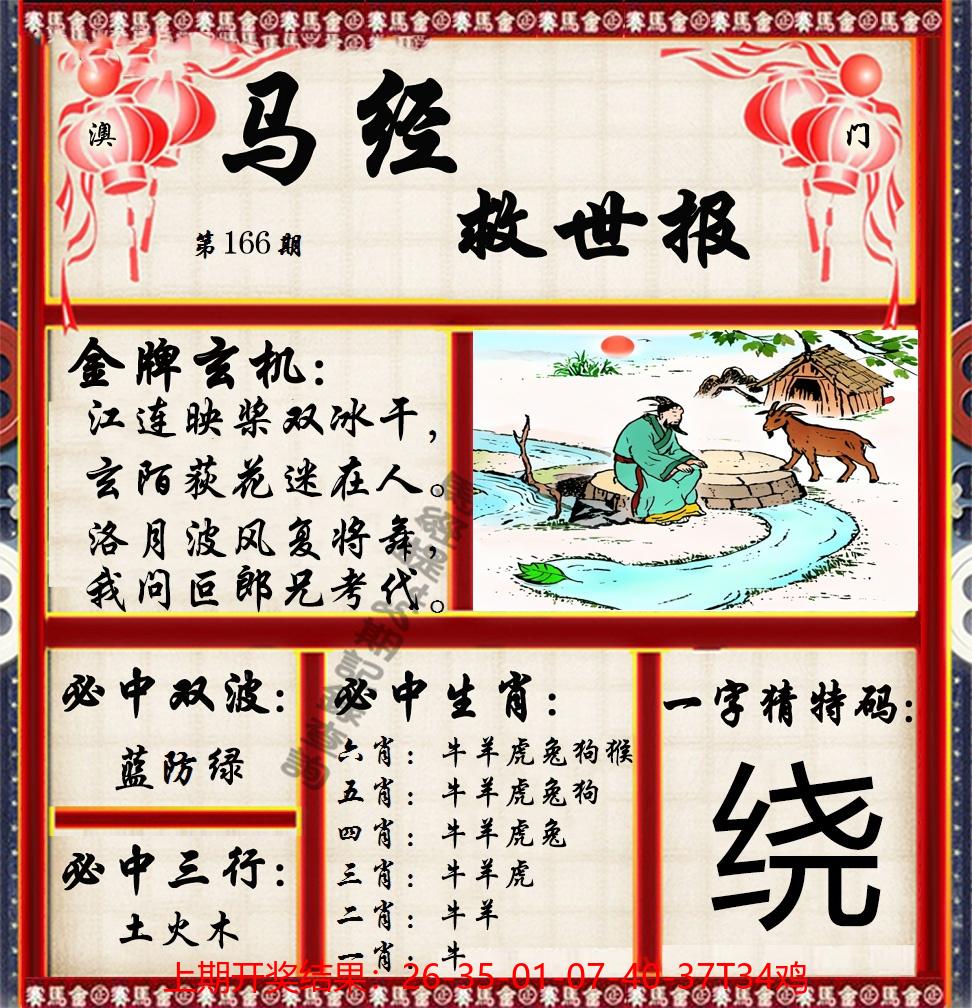 澳
门
马经
救世报
第166期
金牌玄机：
江连映桨双冰干，
玄陌荻花迷在人。
洛月波风复将舞，
我问巨郎兄考代。
必中双波：
蓝防绿
必中三行：
土火木
必中生肖：
六肖：牛羊虎兔狗猴
五肖：牛羊虎兔狗
四肖：牛羊虎兔
三肖：牛羊虎
二肖：牛羊
一肖：牛
一字猜特码：
绕
上期开奖结果：26-35-01-07-40-37T34鸡